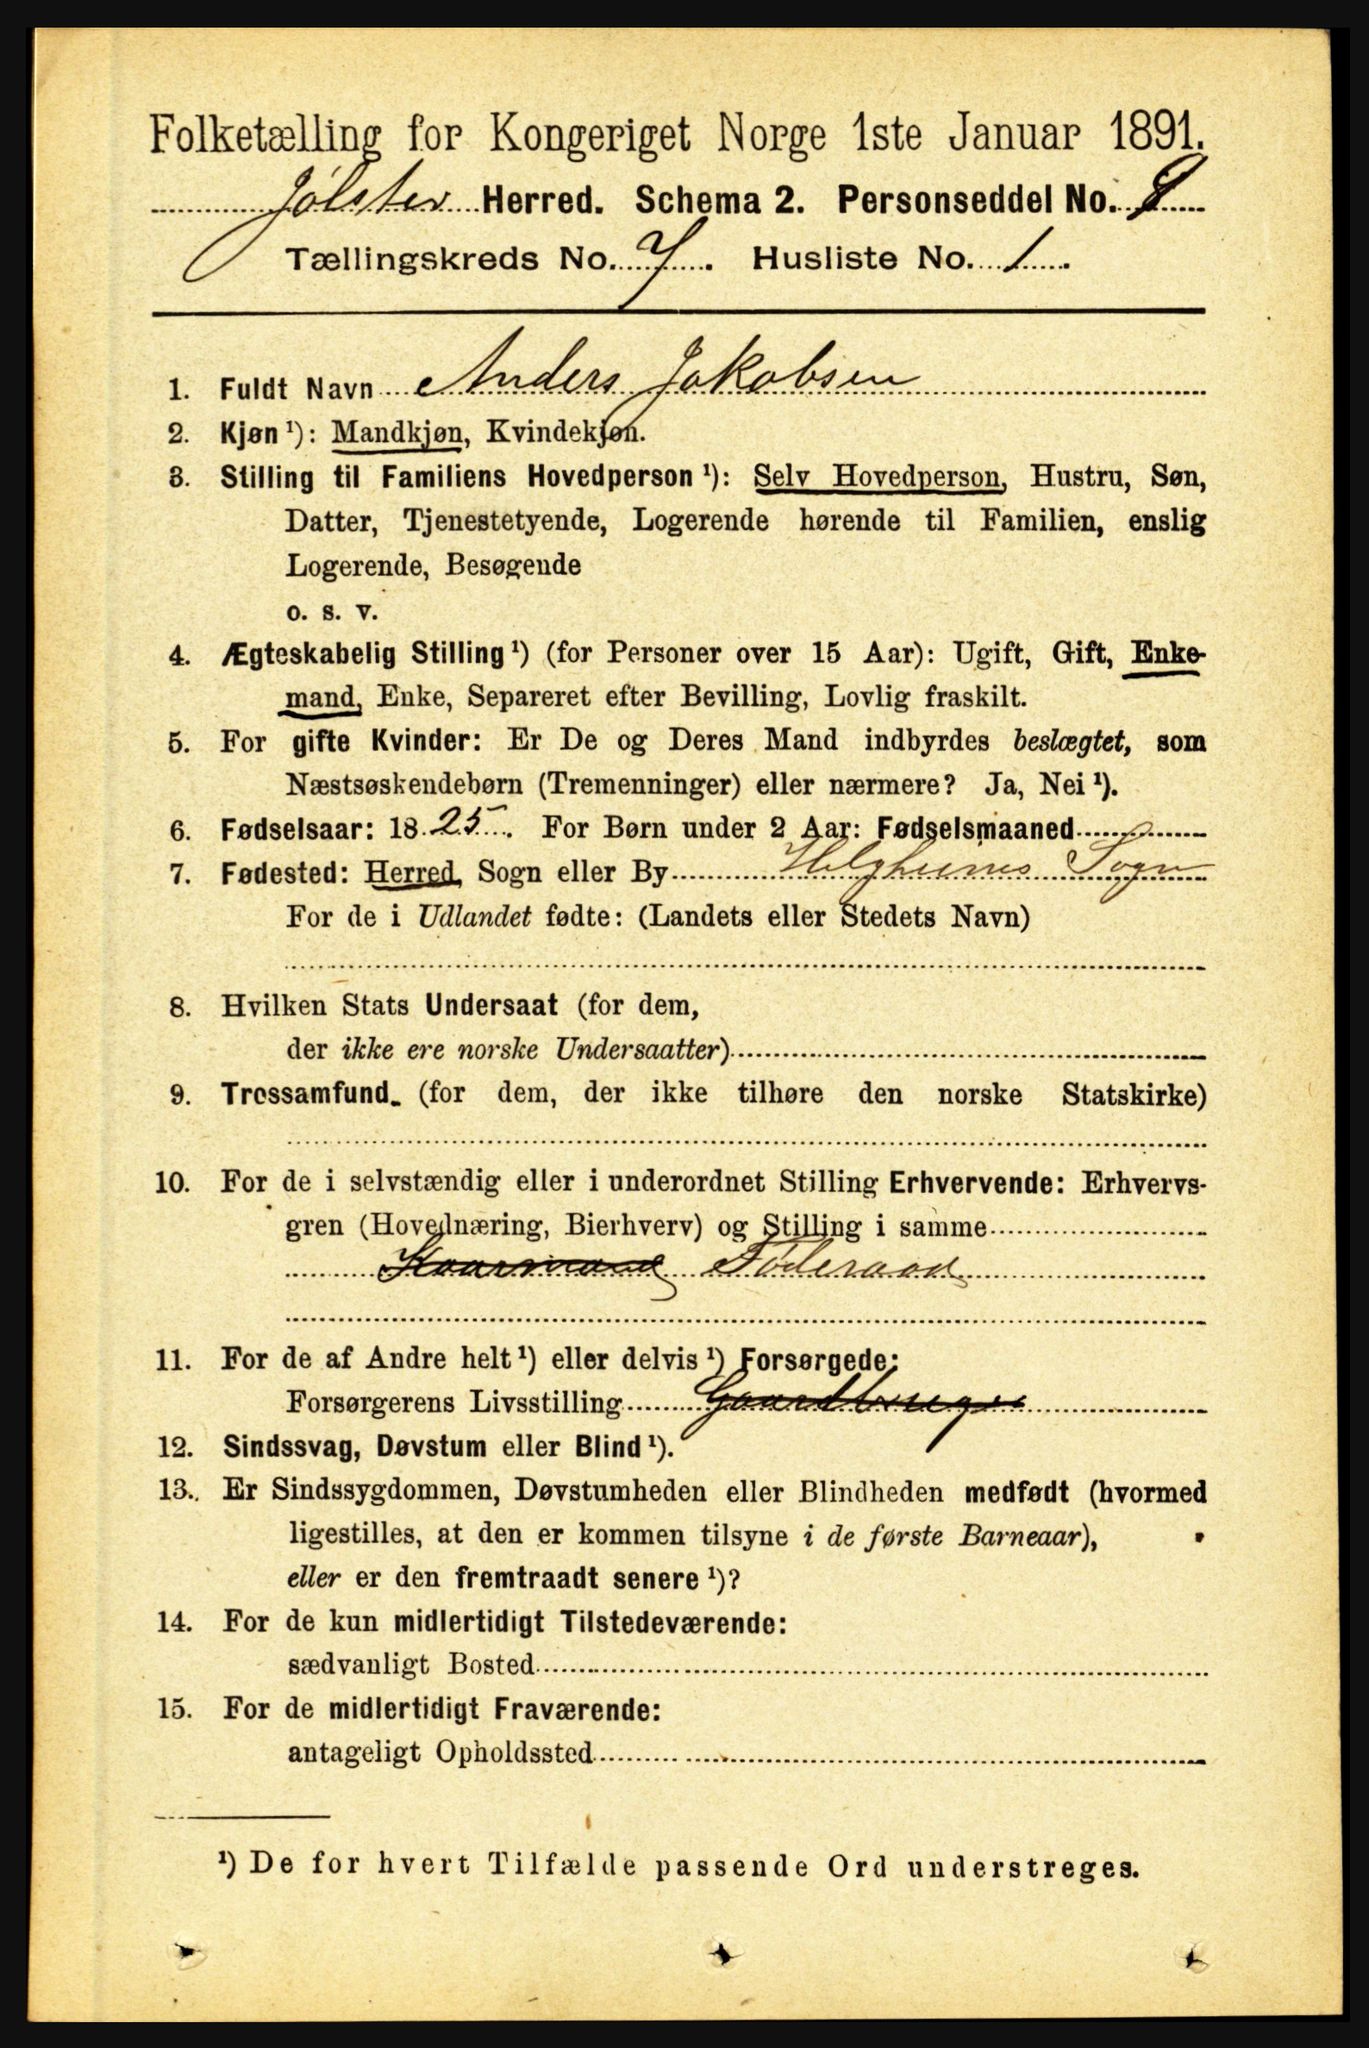 Folketælling for Kongeriget Norge 1ste Januar 1891.
Jølster Herred. Schema 2. Personseddel No. 9
Tællingskreds No. 7. Husliste No. 1.
1. Fuldt Navn Anders Jakobsen
2. Kjøn¹): Mandkjøn, Kvindekjøn.
3. Stilling til Familiens Hovedperson¹): Selv Hovedperson, Hustru, Søn,
Datter, Tjenestetyende, Logerende hørende til Familien, enslig
Logerende, Besøgende
o. s. v.
4. Ægteskabelig Stilling¹) (for Personer over 15 Aar): Ugift, Gift, Enke-
mand, Enke, Separeret efter Bevilling, Lovlig fraskilt.
5. For gifte Kvinder: Er De og Deres Mand indbyrdes beslægtet, som
Næstsøskendebørn (Tremenninger) eller nærmere? Ja, Nei¹).
6. Fødselsaar: 1825. For Børn under 2 Aar: Fødselsmaaned
7. Fødested: Herred, Sogn eller By Helghems Sogn
For de i Udlandet fødte: (Landets eller Stedets Navn)
8. Hvilken Stats Undersaat (for dem,
der ikke ere norske Undersaatter)
9. Trossamfund. (for dem, der ikke tilhøre den norske Statskirke)
10. For de i selvstændig eller i underordnet Stilling Erhvervende: Erhvervs-
gren (Hovednæring, Bierhverv) og Stilling i samme
Kaarmand Føderaad
11. For de af Andre helt¹) eller delvis¹) Forsørgede:
Forsørgerens Livsstilling Gaardbruger
12. Sindssvag, Døvstum eller Blind¹).
13. Er Sindssygdommen, Døvstumheden eller Blindheden medfødt (hvormed
ligestilles, at den er kommen tilsyne i de første Barneaar),
eller er den fremtraadt senere¹)?
14. For de kun midlertidigt Tilstedeværende:
sædvanligt Bosted
15. For de midlertidigt Fraværende:
antageligt Opholdssted
¹) De for hvert Tilfælde passende Ord understreges.